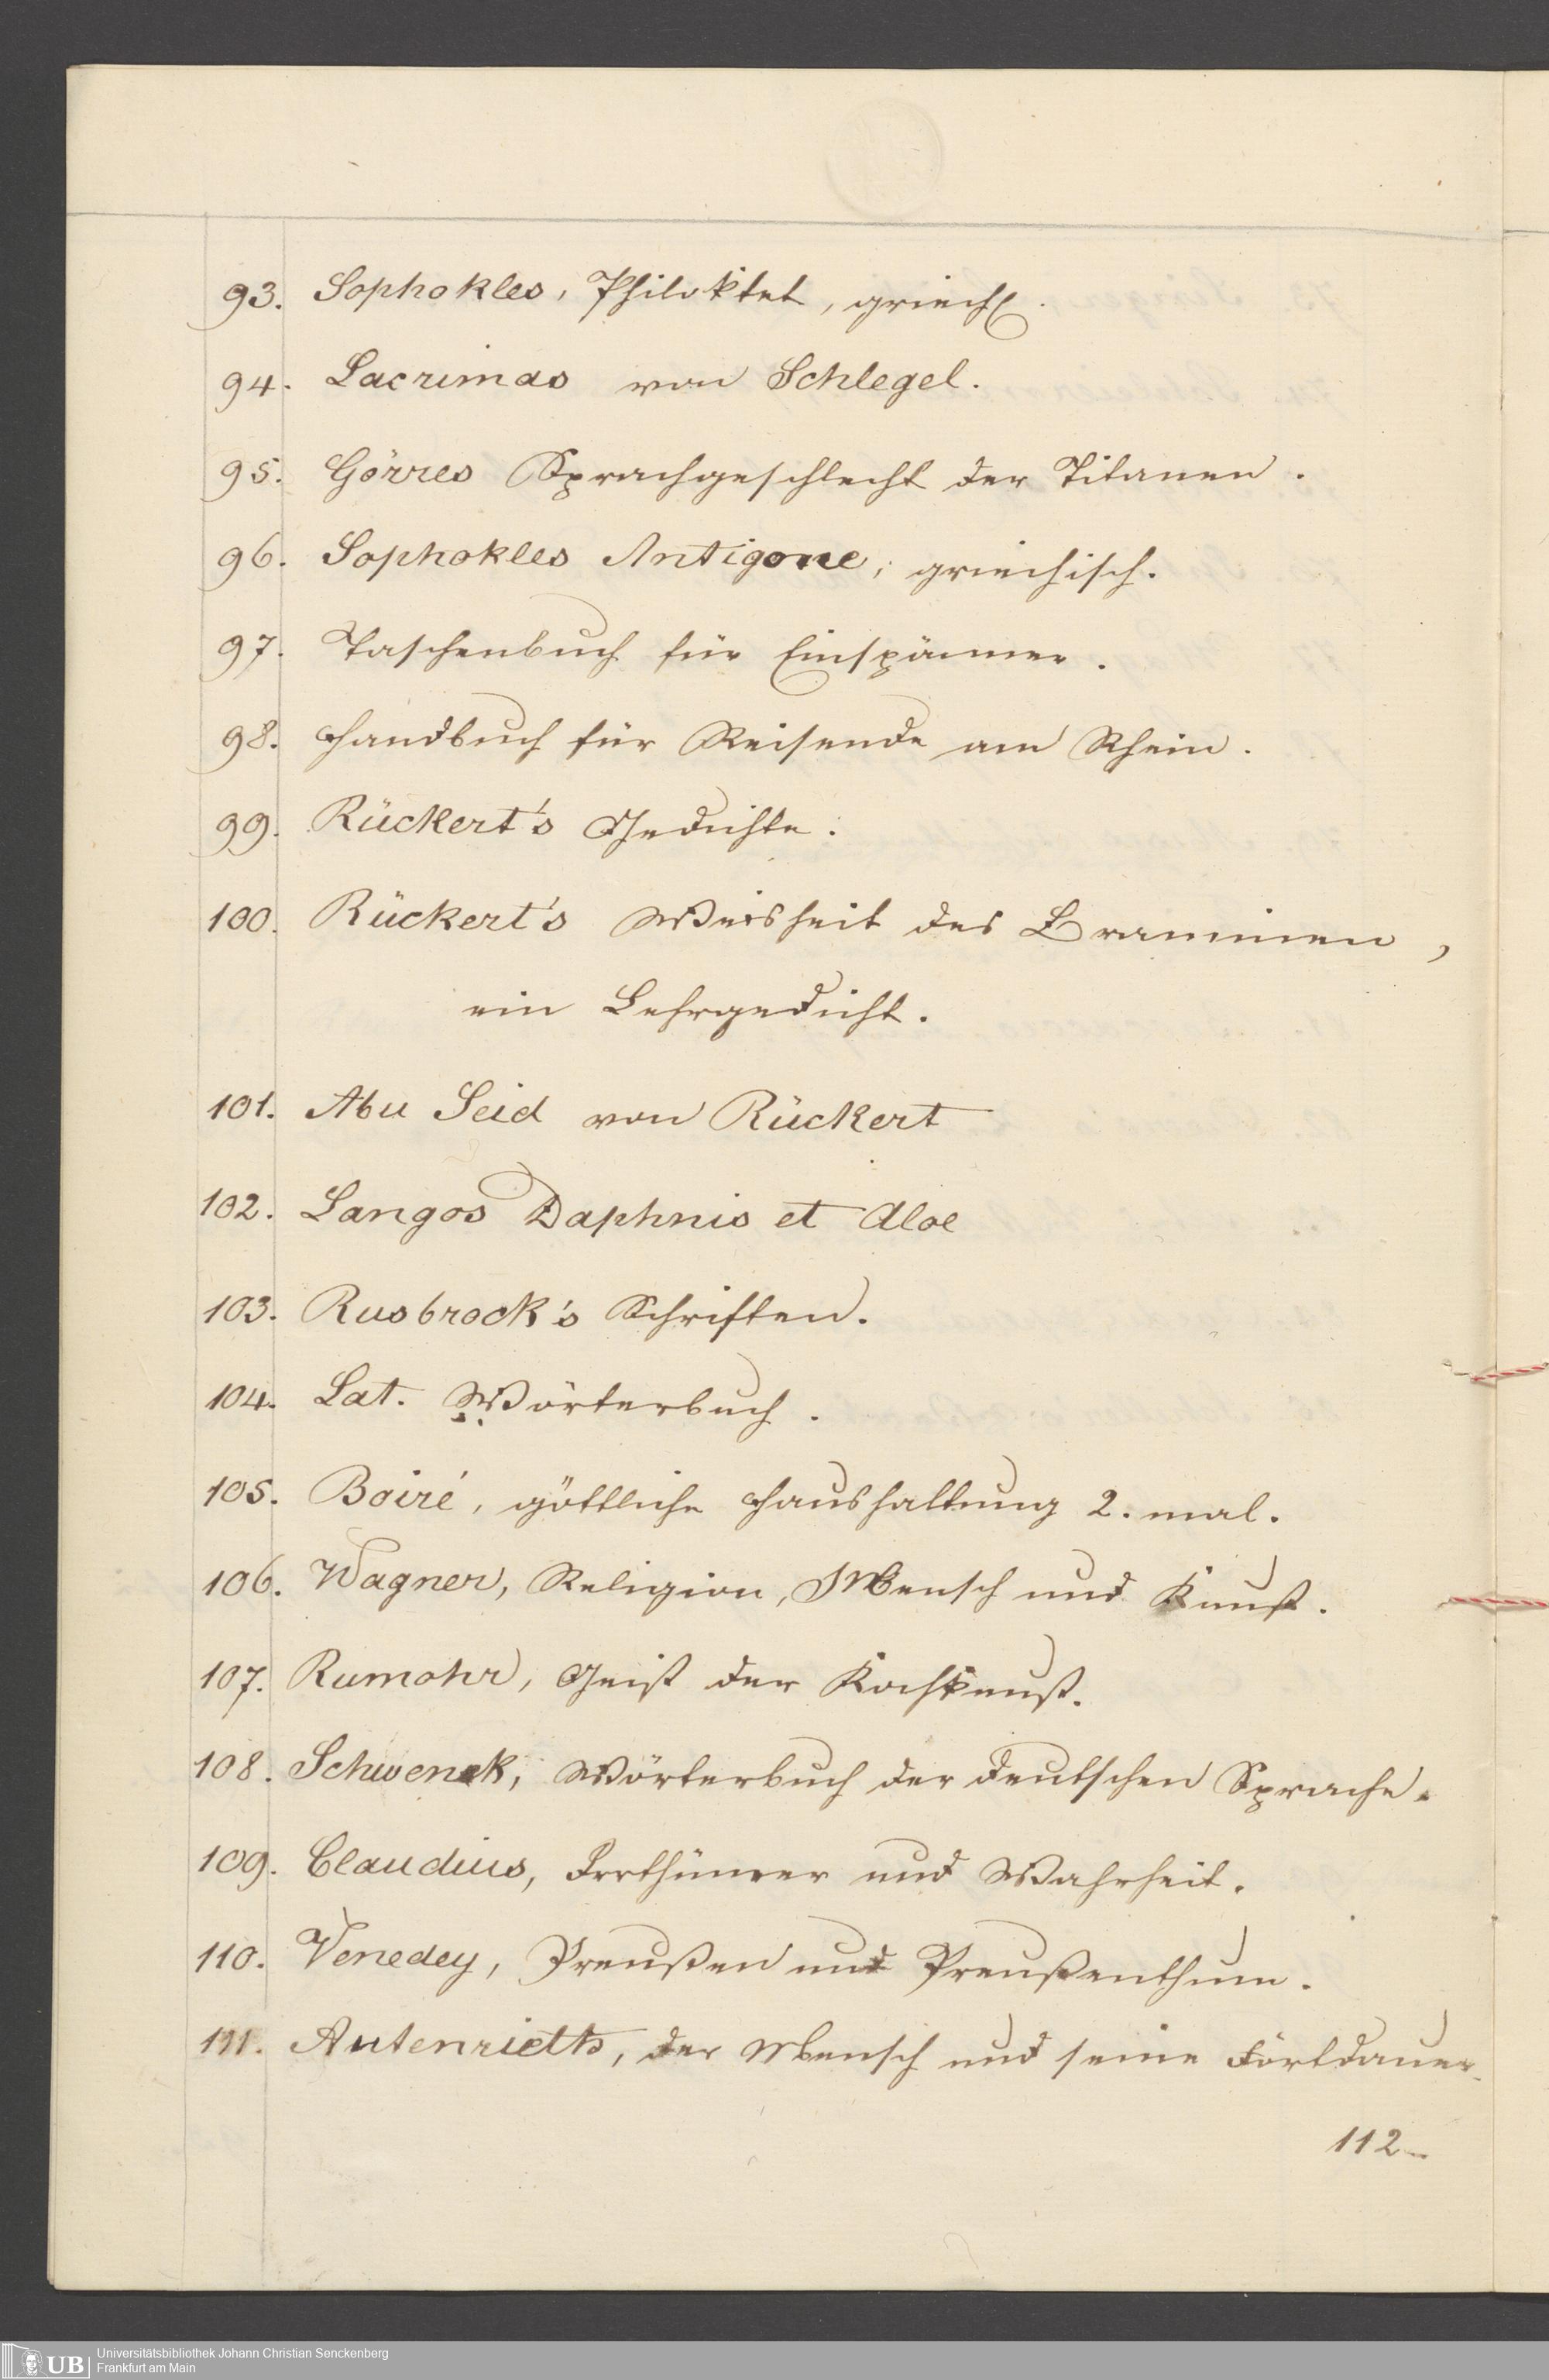 93. Sophokles, Philoktet, griech.
94. Lacrimas von Schlegel.
95. Görres Sprachgeschlecht der Titanen.
96. Sophokles Antigone, griechisch.
97. Taschenbuch für Einspänner.
98. Handbuch für Reisende am Rhein.
99. Rückert's Gedichte.
100. Rückert's Weisheit des Braminen,
ein Lehrgedicht.
101. Abu Seid von Rückert
102. Langos Daphnis et Aloe
103. Rusbrock's Schriften.
104. Lat. Wörterbuch.
105. Boiré, göttliche Haushaltung 2. mal.
106. Wagner, Religion, Mensch und Kunst.
107. Rumohr, Geist der Kochkunst.
108. Schwenck, Wörterbuch der deutschen Sprache.
109. Claudius, Irrthümer und Wahrheit.
110. Venedey, Preußen und Preußenthum.
111. Autenrieth, der Mensch und seine Fortdauer.
112
UB
Universitätsbibliothek Johann Christian Senckenberg
Frankfurt am Main